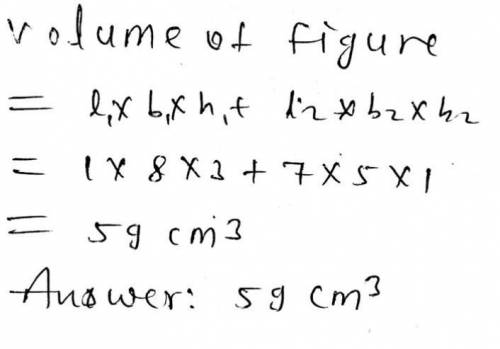 volume of figure
= l₁ x b₁ x h₁ + l₂ x b₂ x h₂
= 1 x 8 x 3 + 7 x 5 x 1
= 59 cm³
Answer: 59 cm³